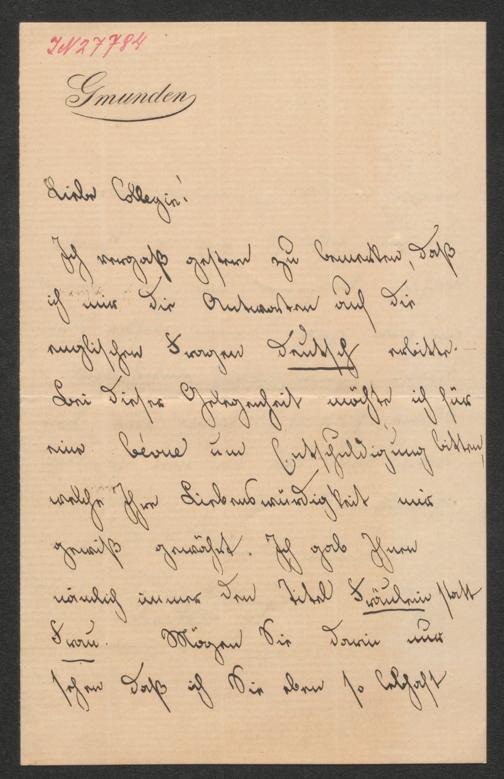 IN 27784
Gmunden
Liebe Collegin!
Ich vergaß gestern zu bemerken, daß
ich mir die Antworten auf die
englischen Fragen Deutsch erbitte.
Bei dieser Gelegenheit möchte ich für
eine béone um Entschuldigung bitten,
welche Ihre Liebenswürdigkeit mir
gewiß gewährt. Ich gab Ihnen
nämlich immer den Titel Fräulein statt
Frau. Mögen Sie darin nur
sehen daß ich Sie eben so lebhaft